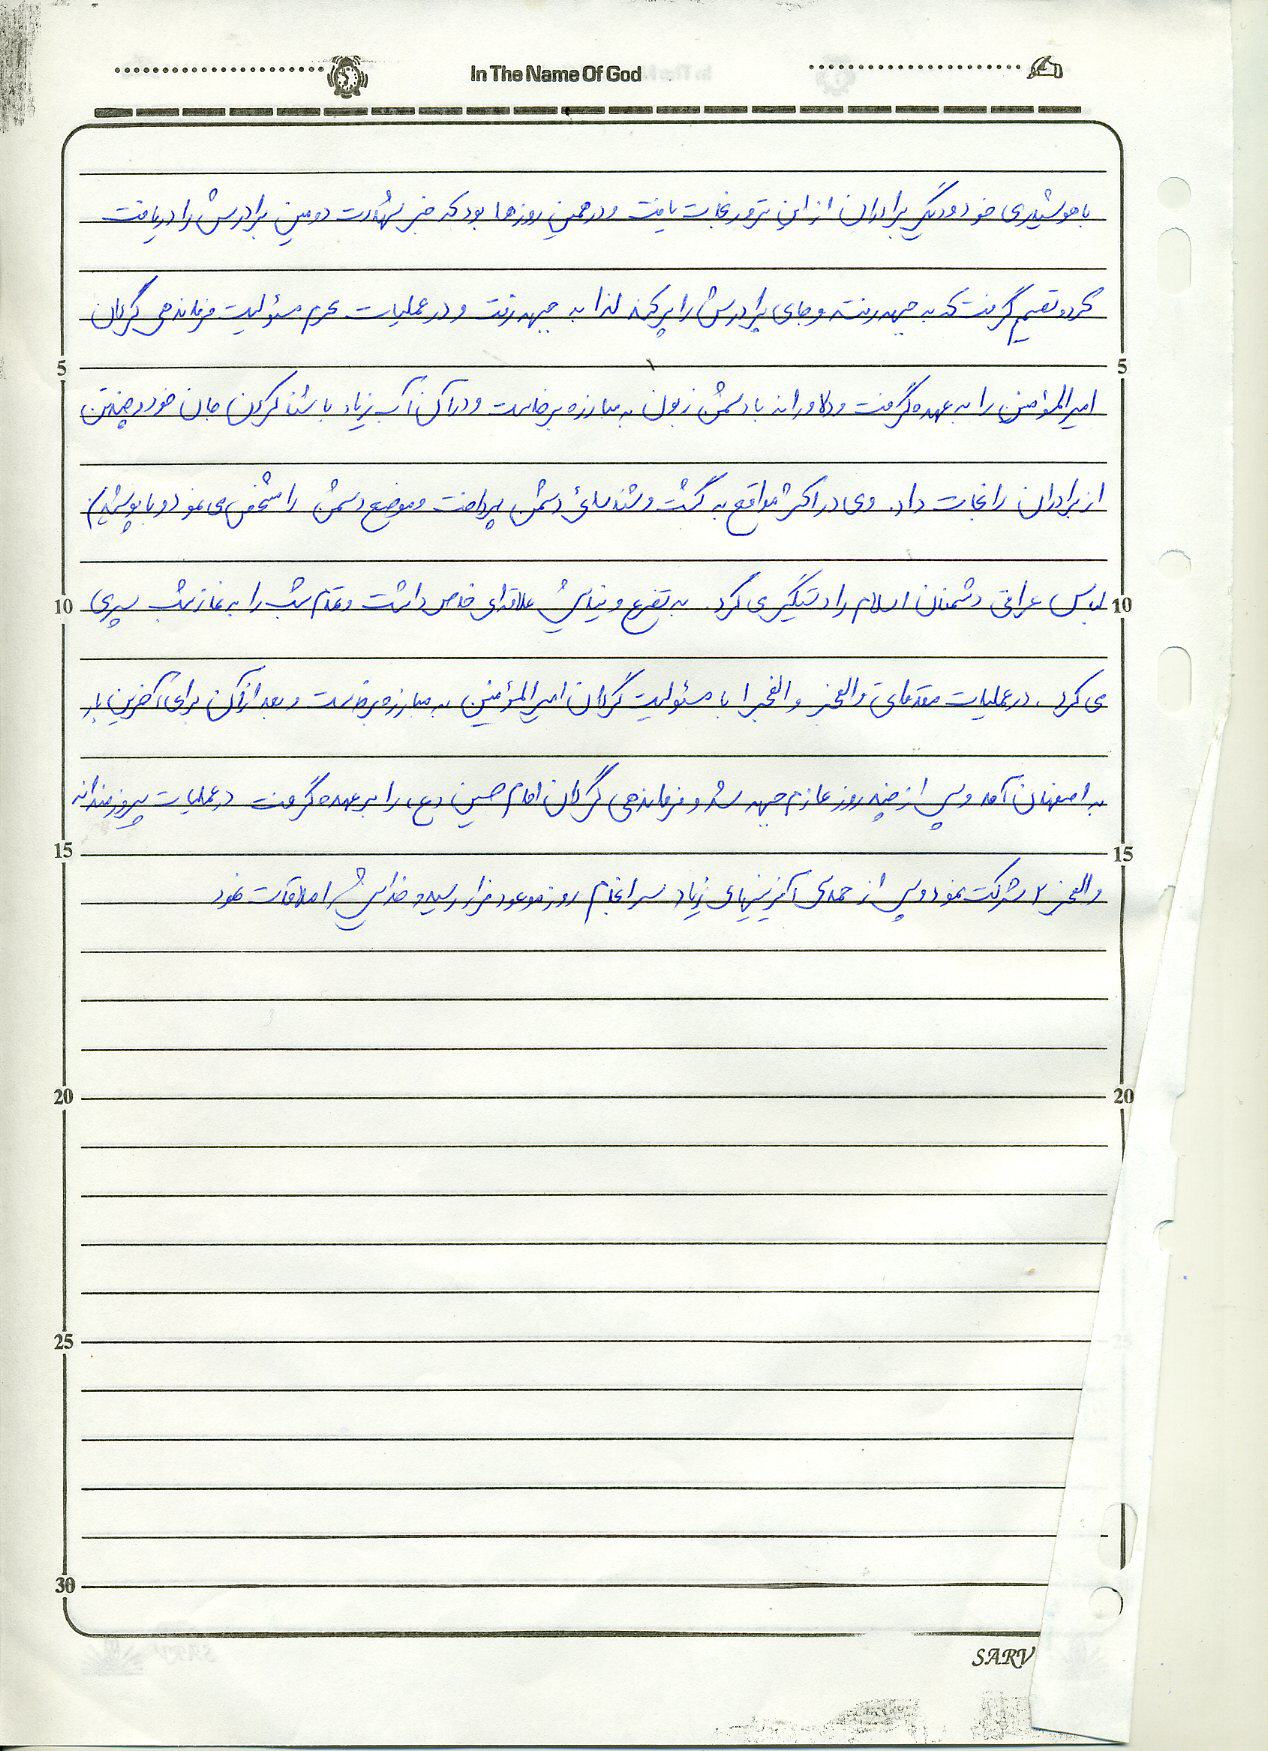 In The Name Of God
باهوشیاری خود و دیگر برادران از این ترور نجات یافت و در همین روزها بود که خبر شهادت دومین برادرش را دریافت
کرد و تصمیم گرفت که به جبهه رفته و جای برادرش را پر کند لذا به جبهه رفت و در عملیات محرم مسئولیت فرماندهی گردان
5 5
امیرالمؤمنین را به عهده گرفت و دلاورانه با دشمن زبون به مبارزه برخاست و در آن آب زیاد با شنا کردن جان خود و چندین
از برادران را نجات داد. وی در اکثر مواقع به گشت و شناسائی دشمن پرداخت و موضع دشمن را مشخص می نمود و با پوشیدن
10 لباس عراقی دشمنان اسلام را دستگیر می کرد. به تضرع و نیایش علاقه‌ای خاص داشت و تمام شب را به نماز شب سپری 10
می کرد. در عملیات مقدماتی والفجر و والفجر ۱ با مسئولیت گردان امیرالمؤمنین به مبارزه برخاست و بعد از آن برای آخرین بار
به اصفهان آمد و پس از چند روز عازم جبهه شد و فرماندهی گردان امام حسین (ع) را بر عهده گرفت در عملیات پیروزمندانه
15 15
والفجر ۲ شرکت نمود و پس از حمله‌ی زیاد سرانجام روز موعود فرا رسید و خدایش را ملاقات نمود
20 20
25 25
30
SARV